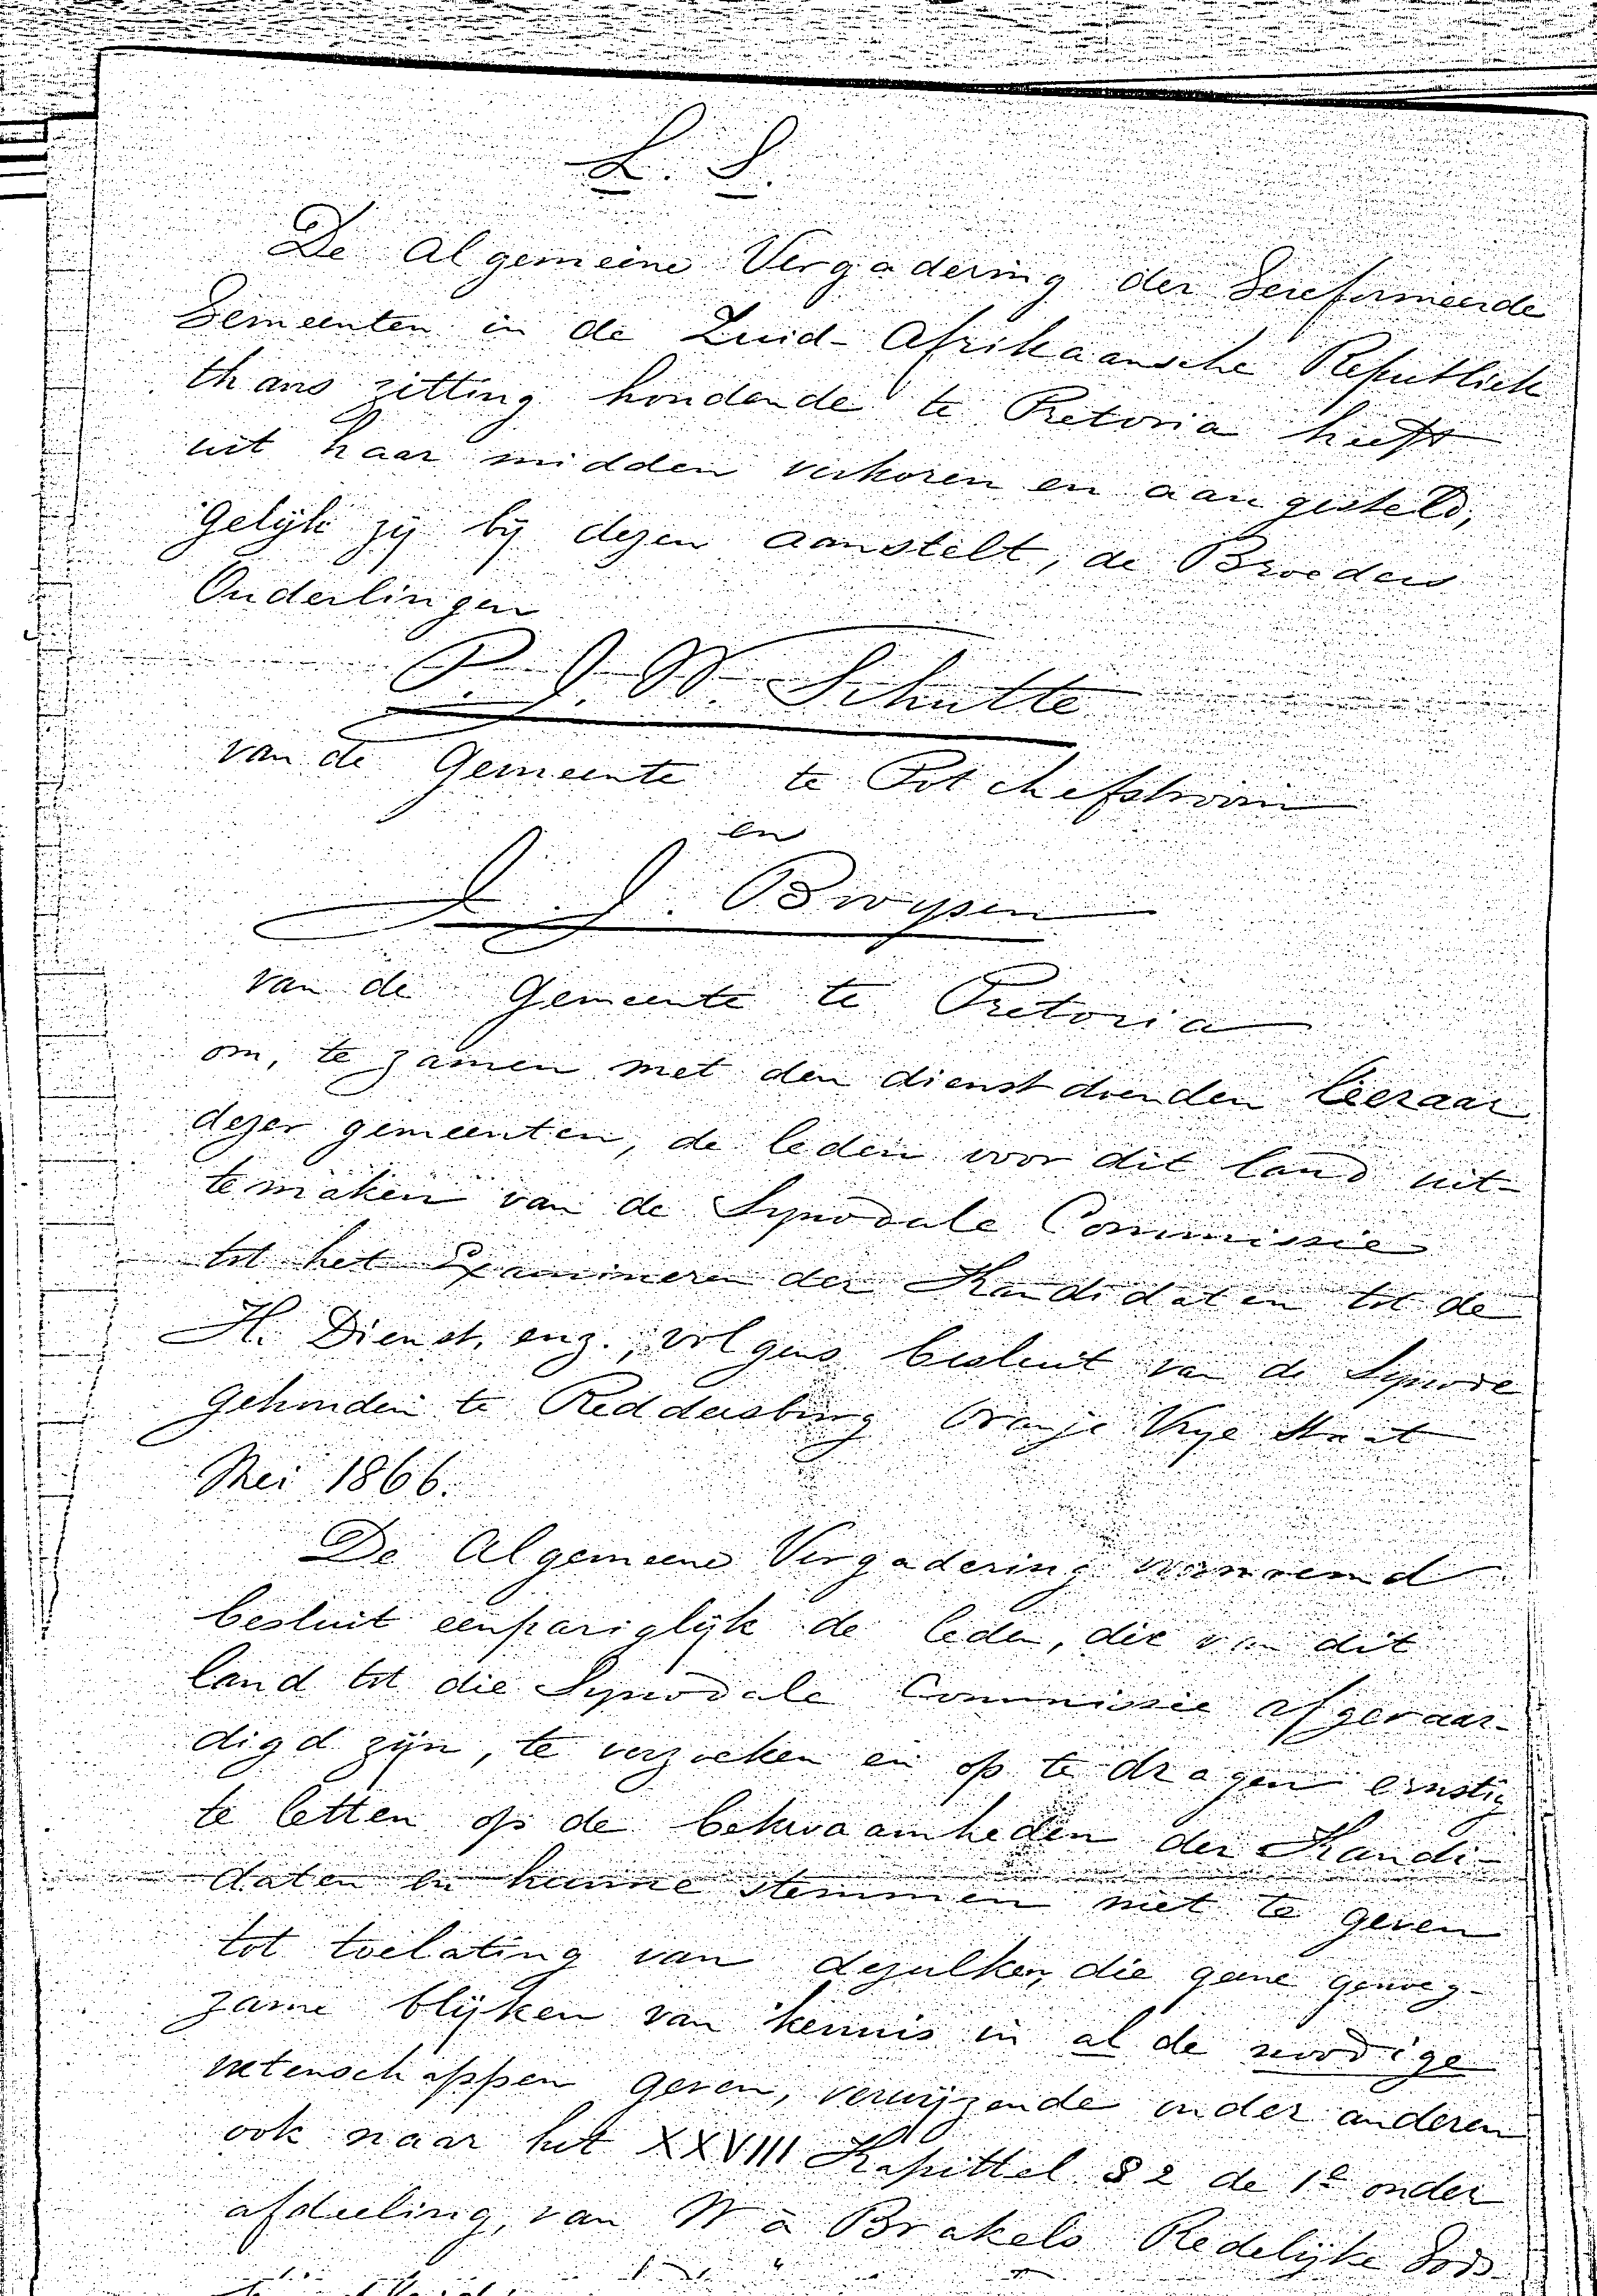 L. S.
De Algemeene Vergadering der Gereformeerde
Gemeenten in de Zuid-Afrikaansche Republiek
thans zitting houdende te Pretoria heeft
uit haar midden verkoren en aangesteld,
Gelijk zij bij dezen aanstelt, de Broeders
Ouderlingen
P. J. W. Schutte
van de Gemeente te Potchefstroom
en
J. J. Bruysen
van de Gemeente te Pretoria
om, te zamen met den dienstdoenden leeraar
dezer gemeenten, de leden voor dit land uit-
temaken van de Synodale Commissie
tot het Examineren der Kandidaten tot de
H. Dienst, enz., volgens besluit van de Synode
gehouden te Reddersburg Oranje Vrye Staat
Mei 1866.
De Algemeene Vergadering voornoemd
besluit eenpariglijk de leden, die van dit
land tot die Synodale Commissie afgevaar-
digd zijn, te verzoeken en op te dragen ernstig
te letten op de bekwaamheden der Kandi-
daten en hunne stemmen niet te geven
tot toelating van dezulken, die geene genoeg-
zame blijken van kennis in al de noodige
wetenschappen geven, verwijzende onder anderen
ook naar het XXVIII Kapittel § 2 de 1e onder
afdeeling, van W à Brakels Redelijke Gods